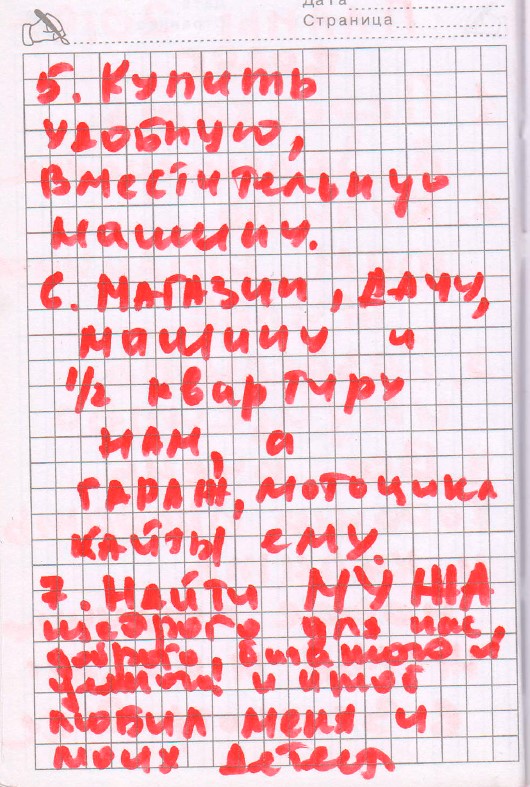 Дата
Страница
5. Купить
удобную,
вместительную
машину.
6. МАГАЗИН, ДАЧУ,
машину и
1/2 квартиру
нам, а
ГАРАЖ, мотоцикл
кайты ему.
7. Найти МУЖА
щедрого для нас,
доброго,
и чтоб
любил меня и
моих детей